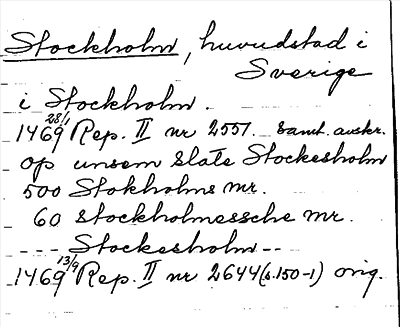 Stockholm, huvudstad i
Sverige
i Stockholm.
1469 28/1 Rep. II nr 2551. Samt. avskr.
op unsem slate Stockesholm
500 Stokholms mr.
60 stockholmessche mr.
--- Stockesholm --
1469 13/9 Rep. II nr 2644 (s. 150-1) orig.